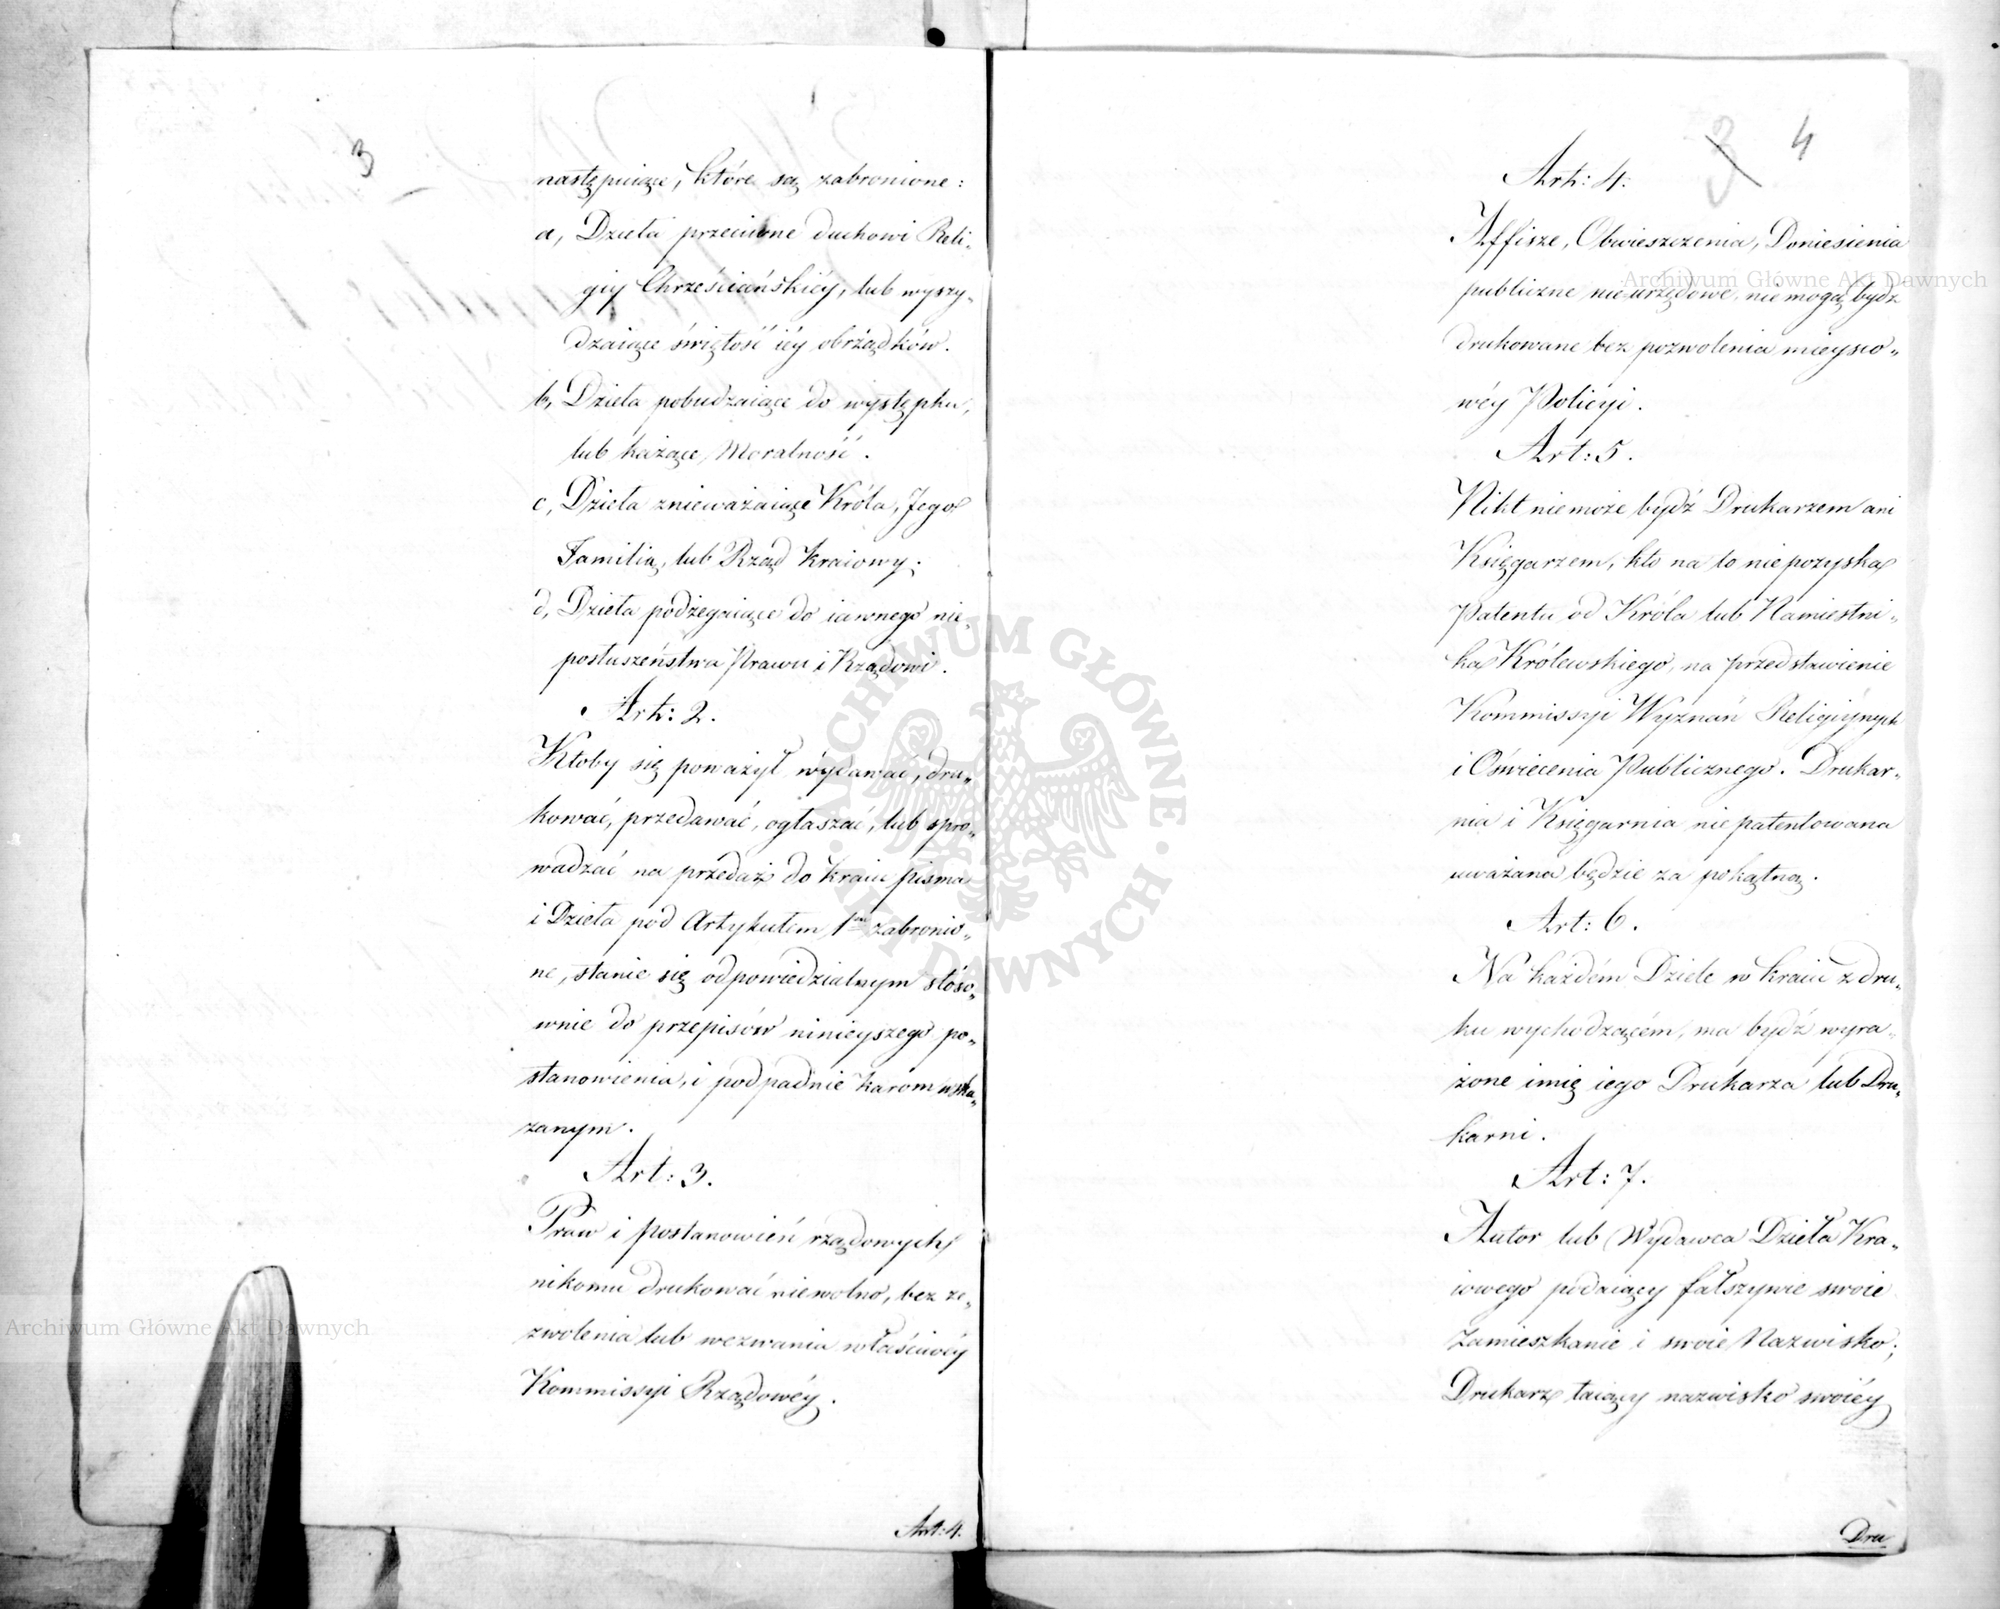 3
następuiące, które są zabronione:
a, Dzieła przeciwne duchowi Reli„
giy Chrześciańskiéy, lub wyszy„
dzaiące świętość iéy obrządków.
b, Dzieła pobudzaiące do występku,
lub każące Moralność.
c, Dzieła znieważaiące Króla, Jego
Familią, lub Rząd kraiowy.
d, Dzieła podżegaiące do iawnego nie„
posłuszeństwa Prawu i Rządowi.
Art: 2.
Ktoby się poważył wydawać, dru„
kować, przedawać, ogłaszać, lub spro„
wadzać na przedaż do kraiu pisma
i Dzieła pod Artykułem 1m zabronio„
ne, stanie się odpowiedzialnym stóso„
wnie do przepisów ninieyszego po„
stanowienia, i podpadnie karóm wska„
zanym.
Art: 3.
Praw i postanowień rządowych,
nikomu drukować niewolno, bez ze„
zwolenia lub wezwania właściwéy
Kommissyi Rządowéy.
Art: 4.
3 4
Art: 4.
Affisze, Obwieszczenia, Doniesienia
publiczne nie urzędowe, nie mogą bydź
drukowane bez pozwolenia mieysco„
wéy Policyi.
Art: 5.
Nikt niemoże bydź Drukarzem ani
Księgarzem, kto na to nie pozyska
Patentu od Króla lub Namiestni„
ka Królewskiego, na przedstawienie
Kommissyi Wyznań Religiynych
i Oświecenia Publicznego. Drukar„
nia i Księgarnia nie patentowana
uważana będzie za pokątną.
Art: 6.
Na każdém Dziele w kraiu z dru„
ku wychodzącém, ma bydź wyra„
żone imię iego Drukarza lub Dru„
karni.
Art: 7.
Autor lub Wydawca Dzieła Kra„
iowego podaiący fałszywie swoie
Zamieszkanie i swoie Nazwisko;
Drukarz taiący nazwisko swoiéy
Dru
Archiwum Główne Akt Dawnych
Archiwum Główne Akt Dawnych
ARCHIWUM GŁÓWNE AKT DAWNYCH